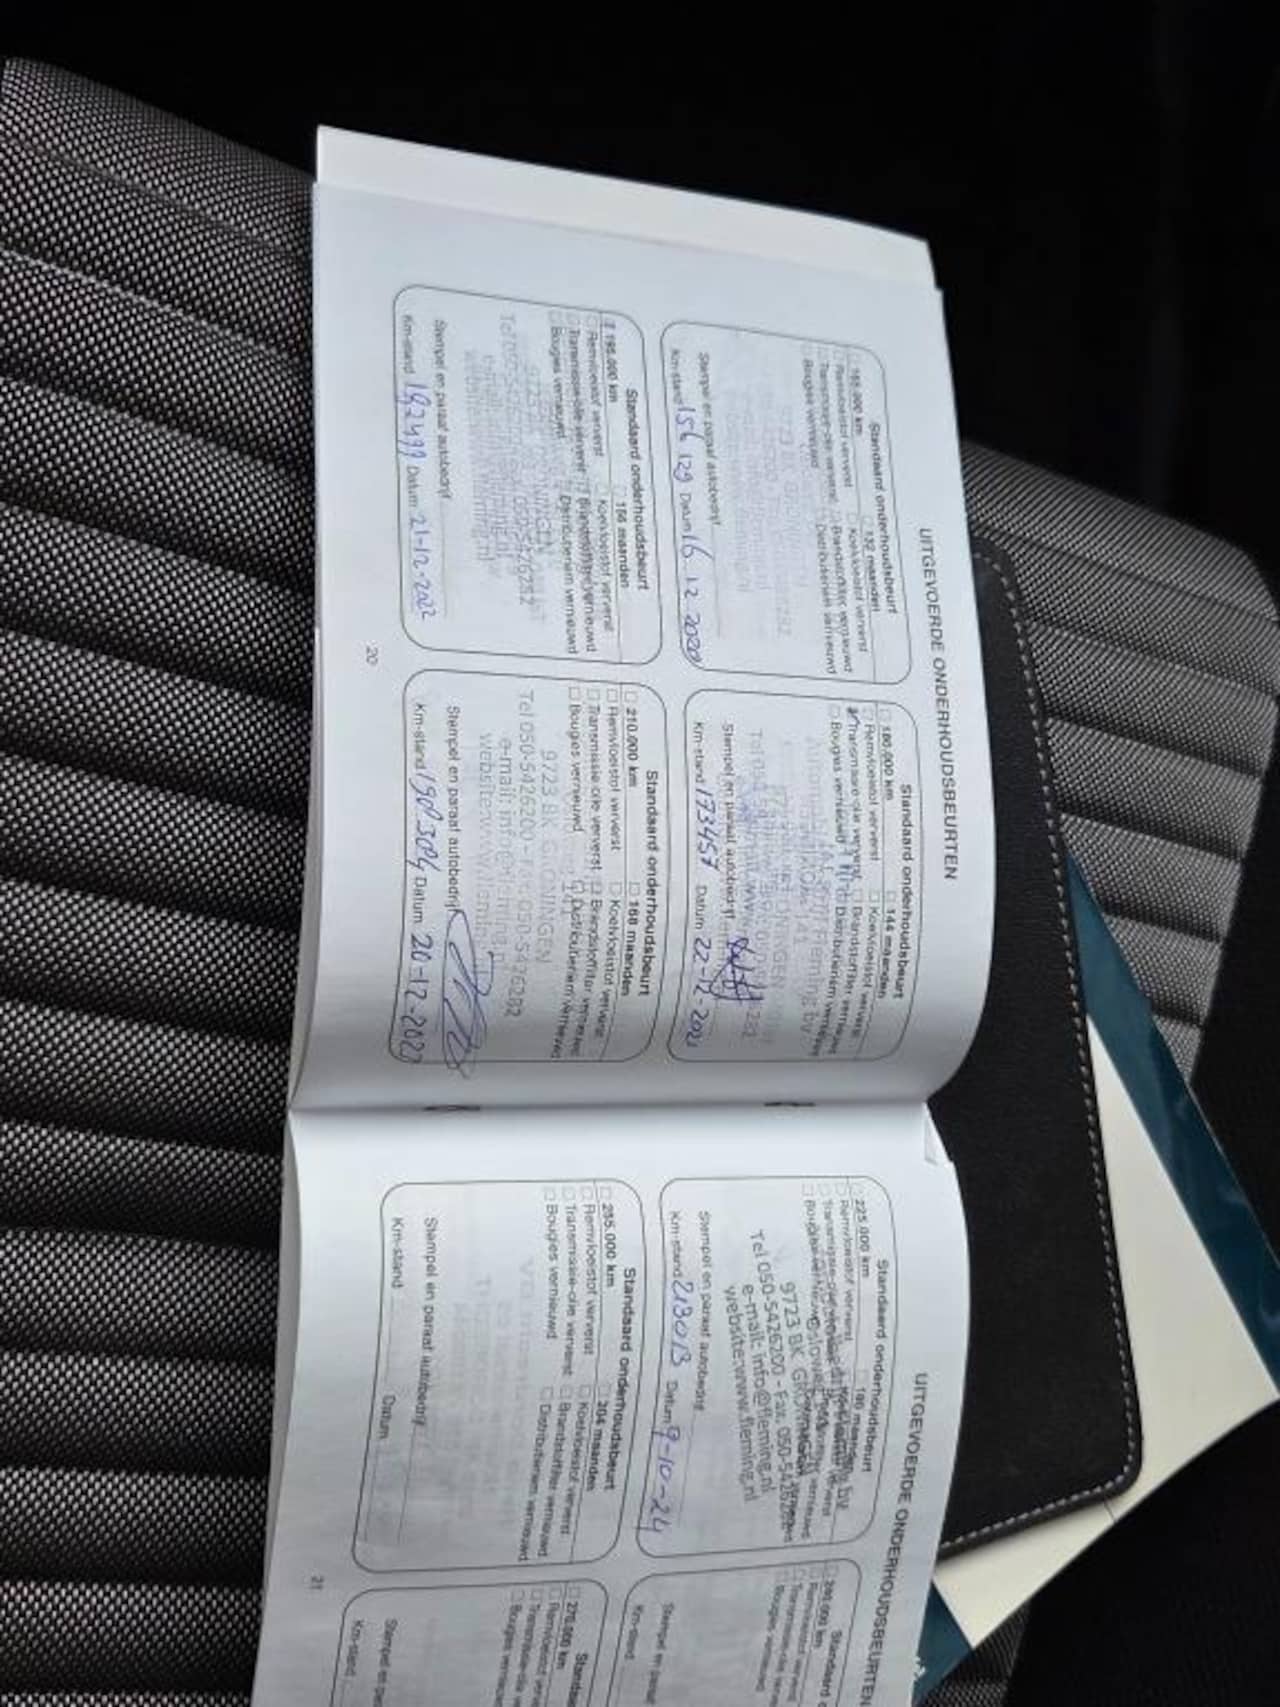 UITGEVOERDE ONDERHOUDSBEURTEN
Standaard onderhoudsbeurt
165.000 km 132 maanden
Remvloeistof ververst Koelvloeistof ververst
Transmissie-olie ververst Brandstoffilter vernieuwd
Bougies vernieuwd Distributieriem vernieuwd
Stempel en paraaf autobedrijf
Km-stand 156 129 Datum 16.12 2020
Standaard onderhoudsbeurt
180.000 km 144 maanden
Remvloeistof ververst Koelvloeistof ververst
Transmissie-olie ververst Brandstoffilter vernieuwd
Bougies vernieuwd Distributieriem vernieuwd
Fleming bv
Stempel en paraaf autobedrijf
Km-stand 173457 Datum 22-12-2021
Standaard onderhoudsbeurt
195.000 km 156 maanden
Remvloeistof ververst Koelvloeistof ververst
Transmissie-olie ververst Brandstoffilter vernieuwd
Bougies vernieuwd Distributieriem vernieuwd
Stempel en paraaf autobedrijf
Km-stand 182499 Datum 21-12-2022
Standaard onderhoudsbeurt
210.000 km 168 maanden
Remvloeistof ververst Koelvloeistof ververst
Transmissie-olie ververst Brandstoffilter vernieuwd
Bougies vernieuwd Distributieriem vernieuwd
9723 BK GRONINGEN
Tel 050-5426200 - Fax. 050-5426282
e-mail: info@fleming.nl
website:www.fleming.nl
Stempel en paraaf autobedrijf
Km-stand Datum 20-12-202
20
UITGEVOERDE ONDERHOUDSBEURTEN
Standaard onderhoudsbeurt
225.000 km 180 maanden
Remvloeistof ververst
Transmissie-olie
Bougies vernieuwd
9723 BK GRONINGEN
Tel 050-5426200 - Fax. 050-5426282
e-mail: info@fleming.nl
website:www.fleming.nl
Stempel en paraaf autobedrijf
Km-stand 213013 Datum 9-10-24
Standaard o
Remvloeistof verver
Transmissie-olie verv
Bougies vernieuwd
Stempel en paraaf
Km-stand
Standaard onderhoudsbeurt
255.000 km 204 maanden
Remvloeistof ververst Koelvloeistof ververst
Transmissie-olie ververst Brandstoffilter vernieuwd
Bougies vernieuwd Distributieriem vernieuwd
Stempel en paraaf autobedrijf
Km-stand Datum
Standaa
270.000 km
Remvloeistof ver
Transmissie-olie v
Bougies vernieuw
Stempel en pa
Km-stand
21